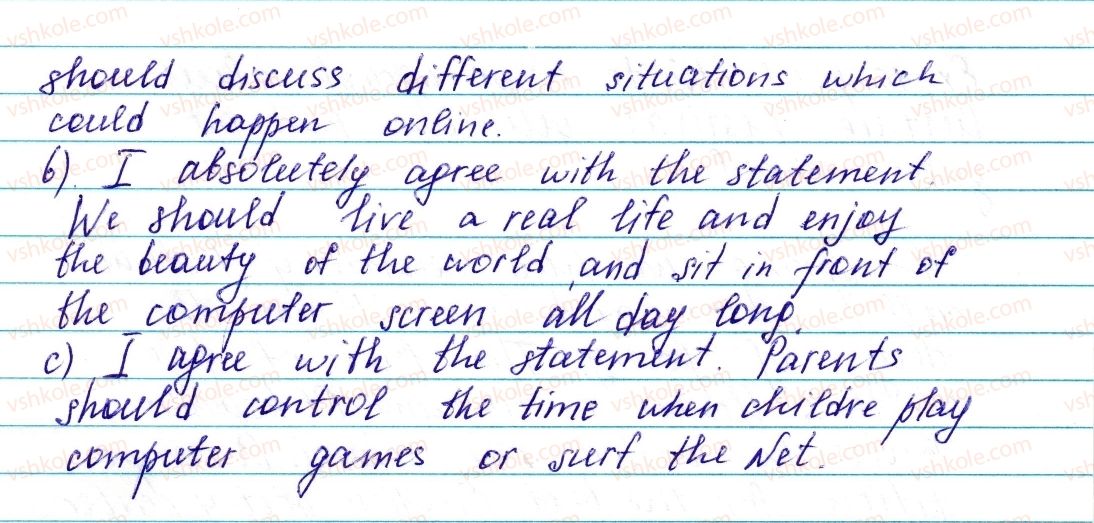 should discuss different situations which
could happen online.
b). I absolutely agree with the statement.
We should live a real life and enjoy
the beauty of the world, and sit in front of
the computer screen all day long.
c) I agree with the statement. Parents
should control the time when childre play
computer games or surf the Net.